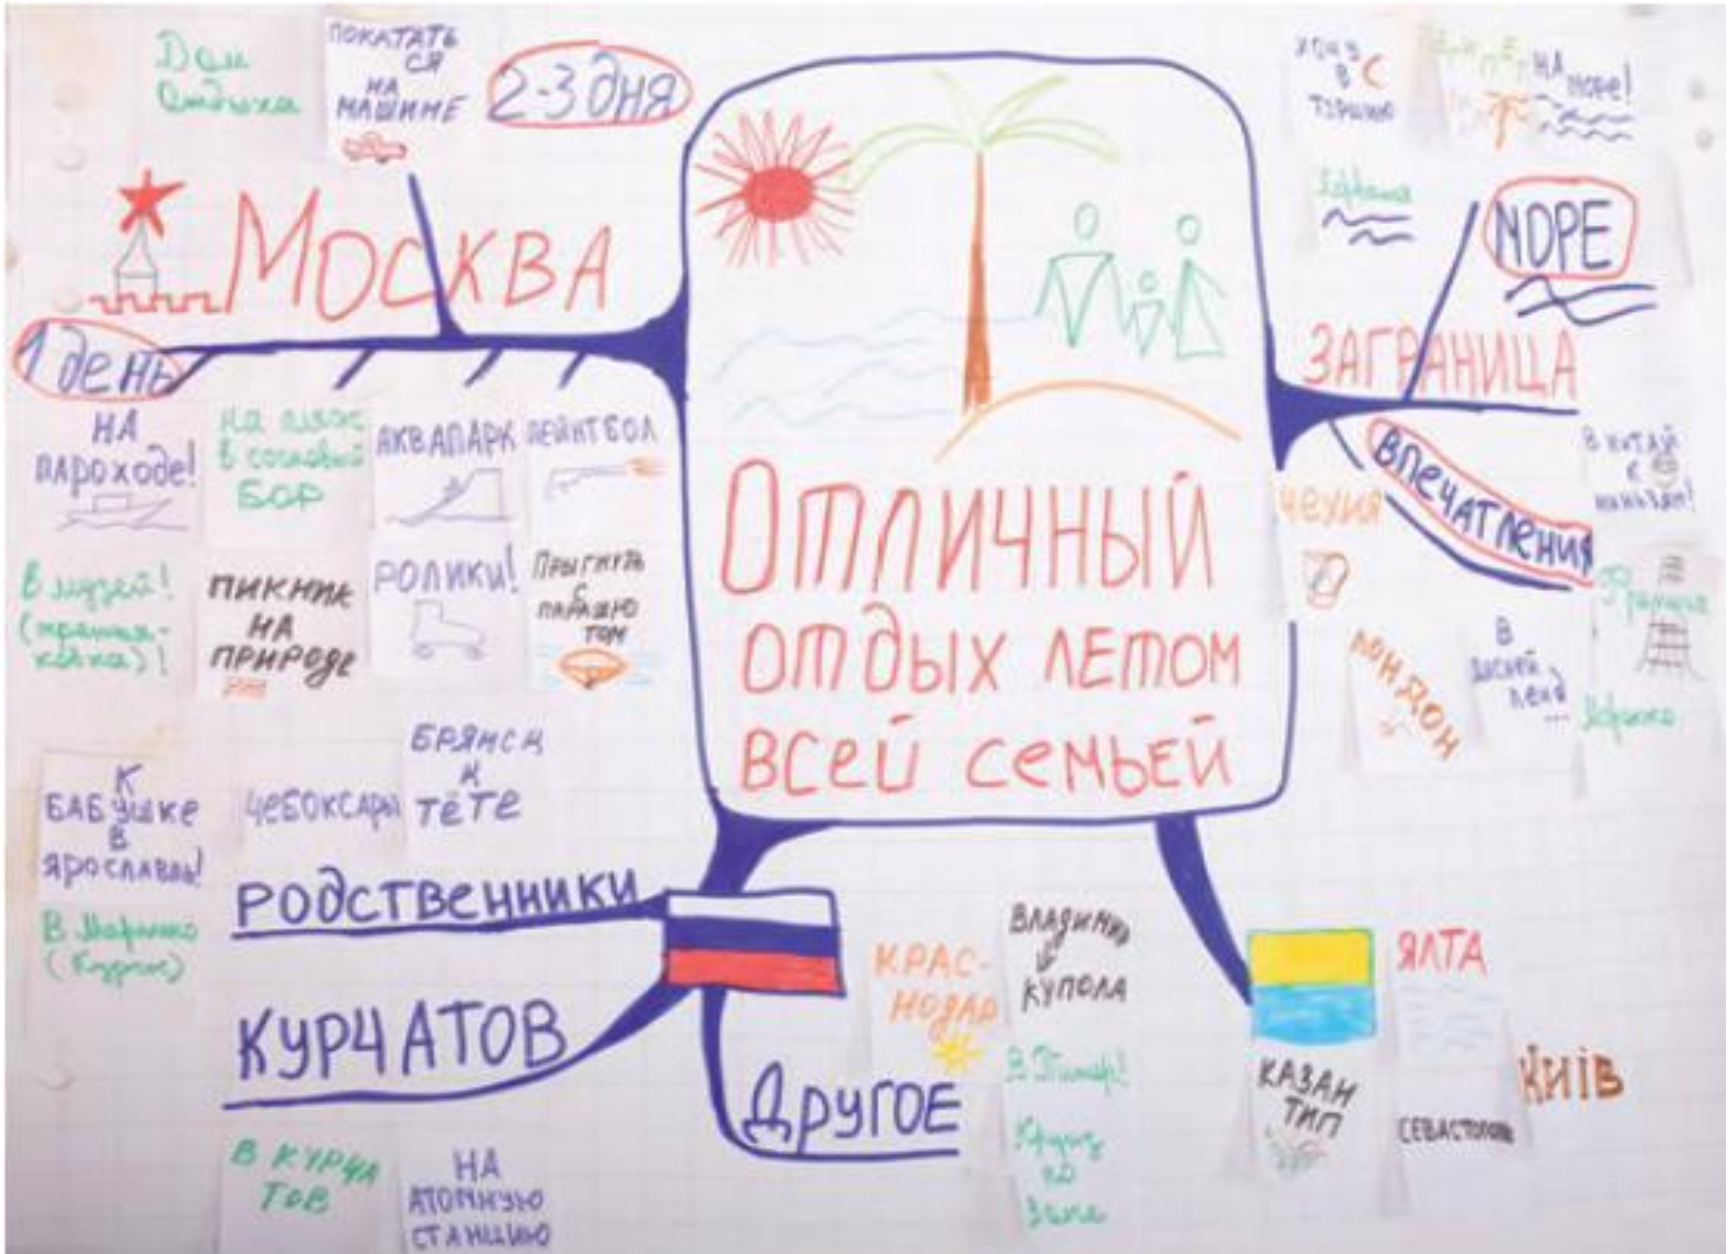 Дом
Отдыха
ПОКАТАТЬ
СЯ
НА
МАШИНЕ
2-3 ДНЯ
МОСКВА
1 день
НА
ПАРОХОДЕ!
на пляж
в сосновый
БОР
АКВАПАРК
ПЕЙНТБОЛ
В музей!
ПИКНИК
НА
ПРИРОДЕ
РОЛИКИ!
ПРЫГНУТЬ
С
ПАРАШЮ
ТОМ
ОТЛИЧНЫЙ
ОТДЫХ ЛЕТОМ
ВСЕЙ СЕМЬЕЙ
ХОЧУ
В
ТУРЦИЮ
НА
МОРЕ!
МОРЕ
ЗАГРАНИЦА
ВПЕЧАТЛЕНИЯ
ЧЕХИЯ
В КИТАЙ
К
ЛОНДОН
В
ДИСНЕЙ
ЛЕНД
...
Франция
К
БАБУШКЕ
В
ЯРОСЛАВЛЬ!
ЧЕБОКСАРЫ
БРЯНСК
К
ТЁТЕ
РОДСТВЕННИКИ
В Марьино
(Курск)
КУРЧАТОВ
В КУРЧА
ТОВ
НА
АТОМНУЮ
СТАНЦИЮ
ДРУГОЕ
КРАС-
НОДАР
ВЛАДИМИР
КУПОЛА
В Питер!
Круиз
по
Волге
ЯЛТА
КАЗАН
ТИП
СЕВАСТОПОЛЬ
КИЇВ